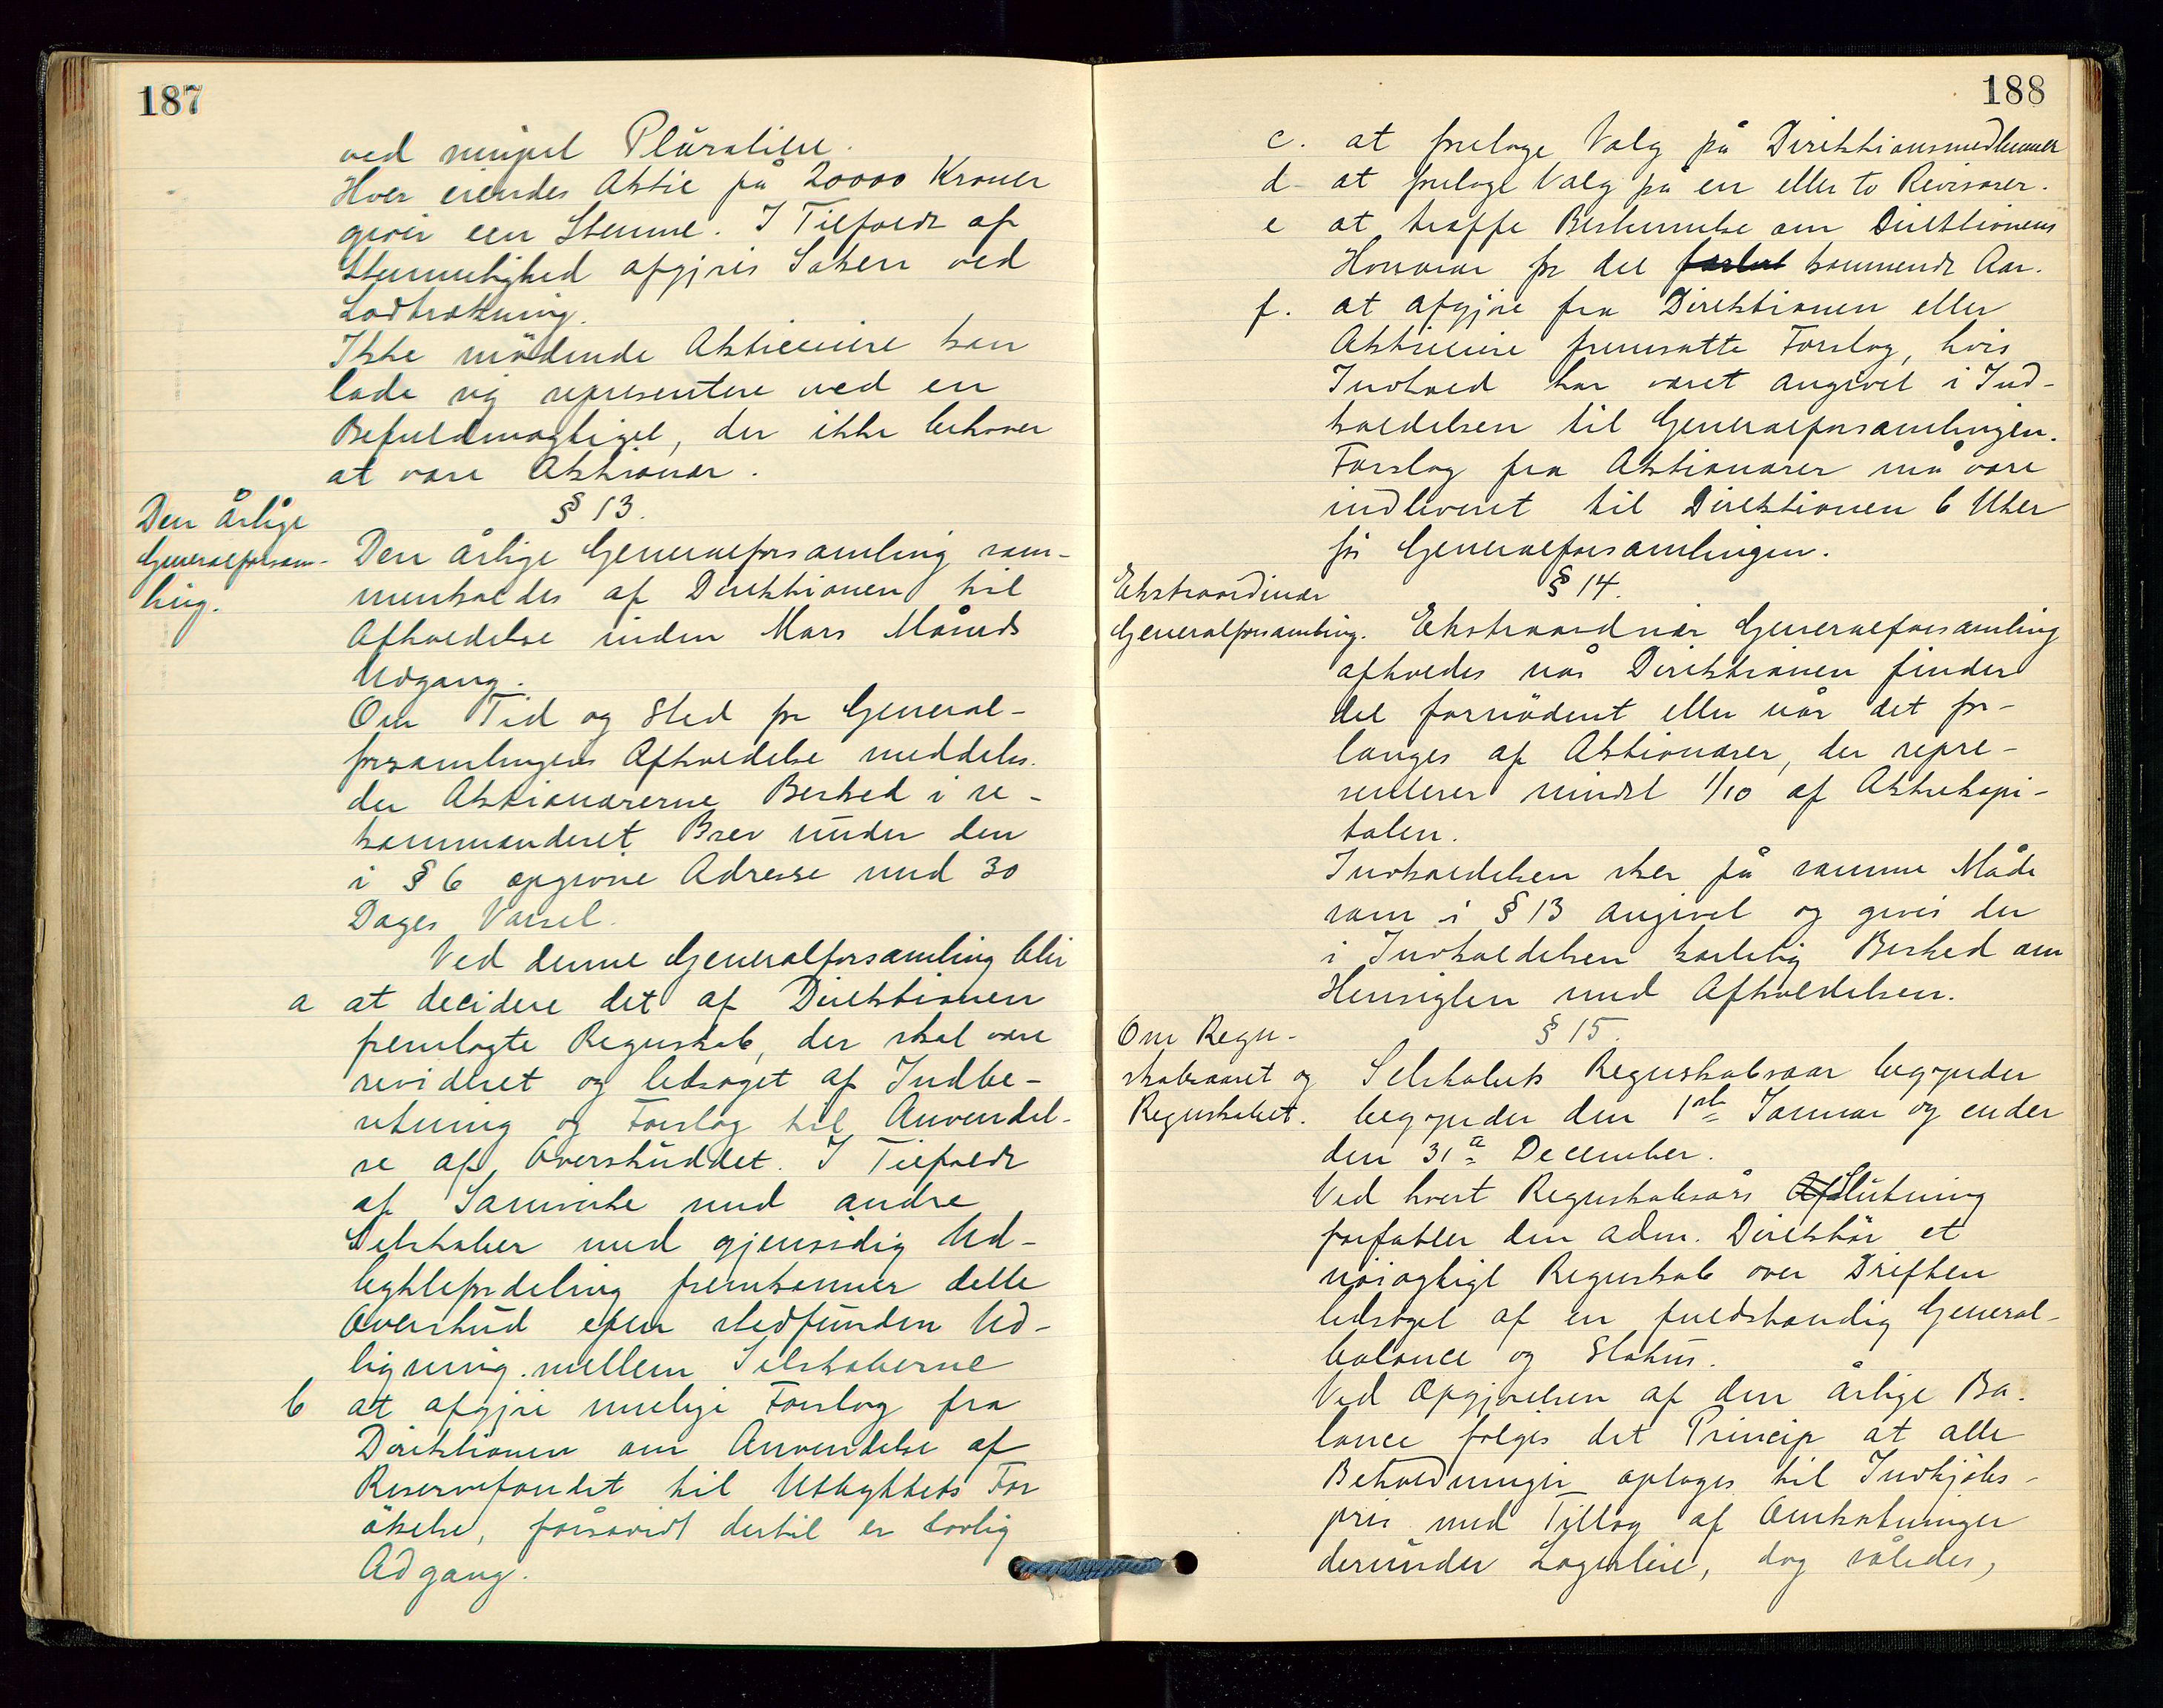 187
ved simpel Pluralitet.
Hver eiendes Aktie på 20000 Kroner
giver een Stemme. I Tilfælde af
Stemmelighed afgjøres Saken ved
Lodtrækning.
Ikke mödende Aktieeiere kan
lade sig repræsentere ved en
Befuldmægtiget, der ikke behøver
at være Aktionær.
§ 13.
Den årlige
Generalforsam-
ling.
Den årlige Generalforsamling sam-
menkaldes af Direktionen til
Afholdelse inden Mars Måneds
Udgang.
Om Tid og Sted for General-
forsamlingens Afholdelse meddeles
der Aktionærerne Besked i re-
kommanderet Brev under den
i § 6 opgivne Adresse med 30
Dages Varsel.
Ved denne Generalforsamling blir
a at decidere det af Direktionen
fremlagte Regnskab, der skal være
revideret og ledsaget af Indbe-
retning og Forslag til Anvendel-
se af Overskuddet. I Tilfælde
af Samvirke med andre
Selskaber med gjensidig Ud-
bytlefordeling fremkommer dette
Overskud efter stedfunden Ud-
ligning mellem Selskaberne
b at afgjøre mulige Forslag fra
Direktionen om Anvendelse af
Reservefondet til Utbyttets For
ökelse, forsåvidt dertil er lovlig
Adgang.
188
c. at foretage Valg på Direktionsmedlemmer
d- at foretage Valg på en eller to Revisorer.
e at træffe Bestemmelse om Direktionens
Honorar for det forlut kommende Aar.
f. at afgjøre fra Direktionen eller
Aktieeiere fremsatte Forslag, hvis
Indhold har været angivet i Ind-
kaldelsen til Generalforsamlingen.
Forslag fra Aktionærer må være
indleveret til Direktionen 6 Uker
før Generalforsamlingen.
§ 14.
Ekstraordinær
Generalforsamling.
Ekstraordnær Generalforsamling
afholdes når Direktionen finder
det fornödent eller når det for-
langes af Aktionærer, der repre-
senterer mindst 1/10 af Aktiekapi-
talen.
Indkaldelsen sker på samme Måde
som i § 13 angivet og gives der
i Indkaldelsen kortelig Besked om
Hensigten med Afholdelsen.
§ 15.
Om Regn-
skabsaaret og
Regnskabet.
Selskabets Regnskabsaar begynder
begynder den 1ste Januar og ender
den 31te December.
Ved hvert Regnskabsårs Afslutning
forfatter den adm. Direktör et
nöiagtigt Regnskab over Driften
ledsaget af en fuldstændig General-
balance og Status.
Ved Opgjørelsen af den årlige Ba-
lance følges det Princip at alle
Beholdninger optages til Indkjöbs-
pris med Tillæg af Omkostninger
derunder Lagerleie, dog således,